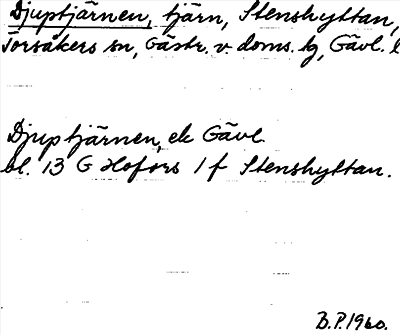 Djuptjärnen, tjärn, Stenshyttan,
Torsåkers sn, Gästr. v. doms. hg, Gävl. l
Djuptjärnen, ek Gävl.
bl. 13 G Hofors 1 f Stenshyttan.
B.P. 1960.